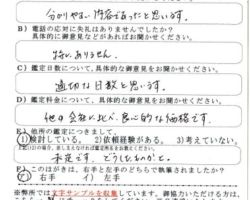 分かりやすい内容であったと思います。
B) 電話の応対に失礼はありませんでしたか?
具体的に御意見などがあればお聞かせください。
特にありません。
C) 鑑定日数について、具体的な御意見をお聞かせください。
適切な日数と思います。
D) 鑑定料金について、具体的な御意見をお聞かせください。
他の会社と比べ良心的な価格です。
E) 他所の鑑定につきまして。
(1)検討している。 2)依頼経験がある。 3)考えていない。
未定です。
F) このはがきは、右手と左手のどちらで執筆されましたか?
右手 左手
※弊所では文字サンプルを収集しています。御協力いただける方は、